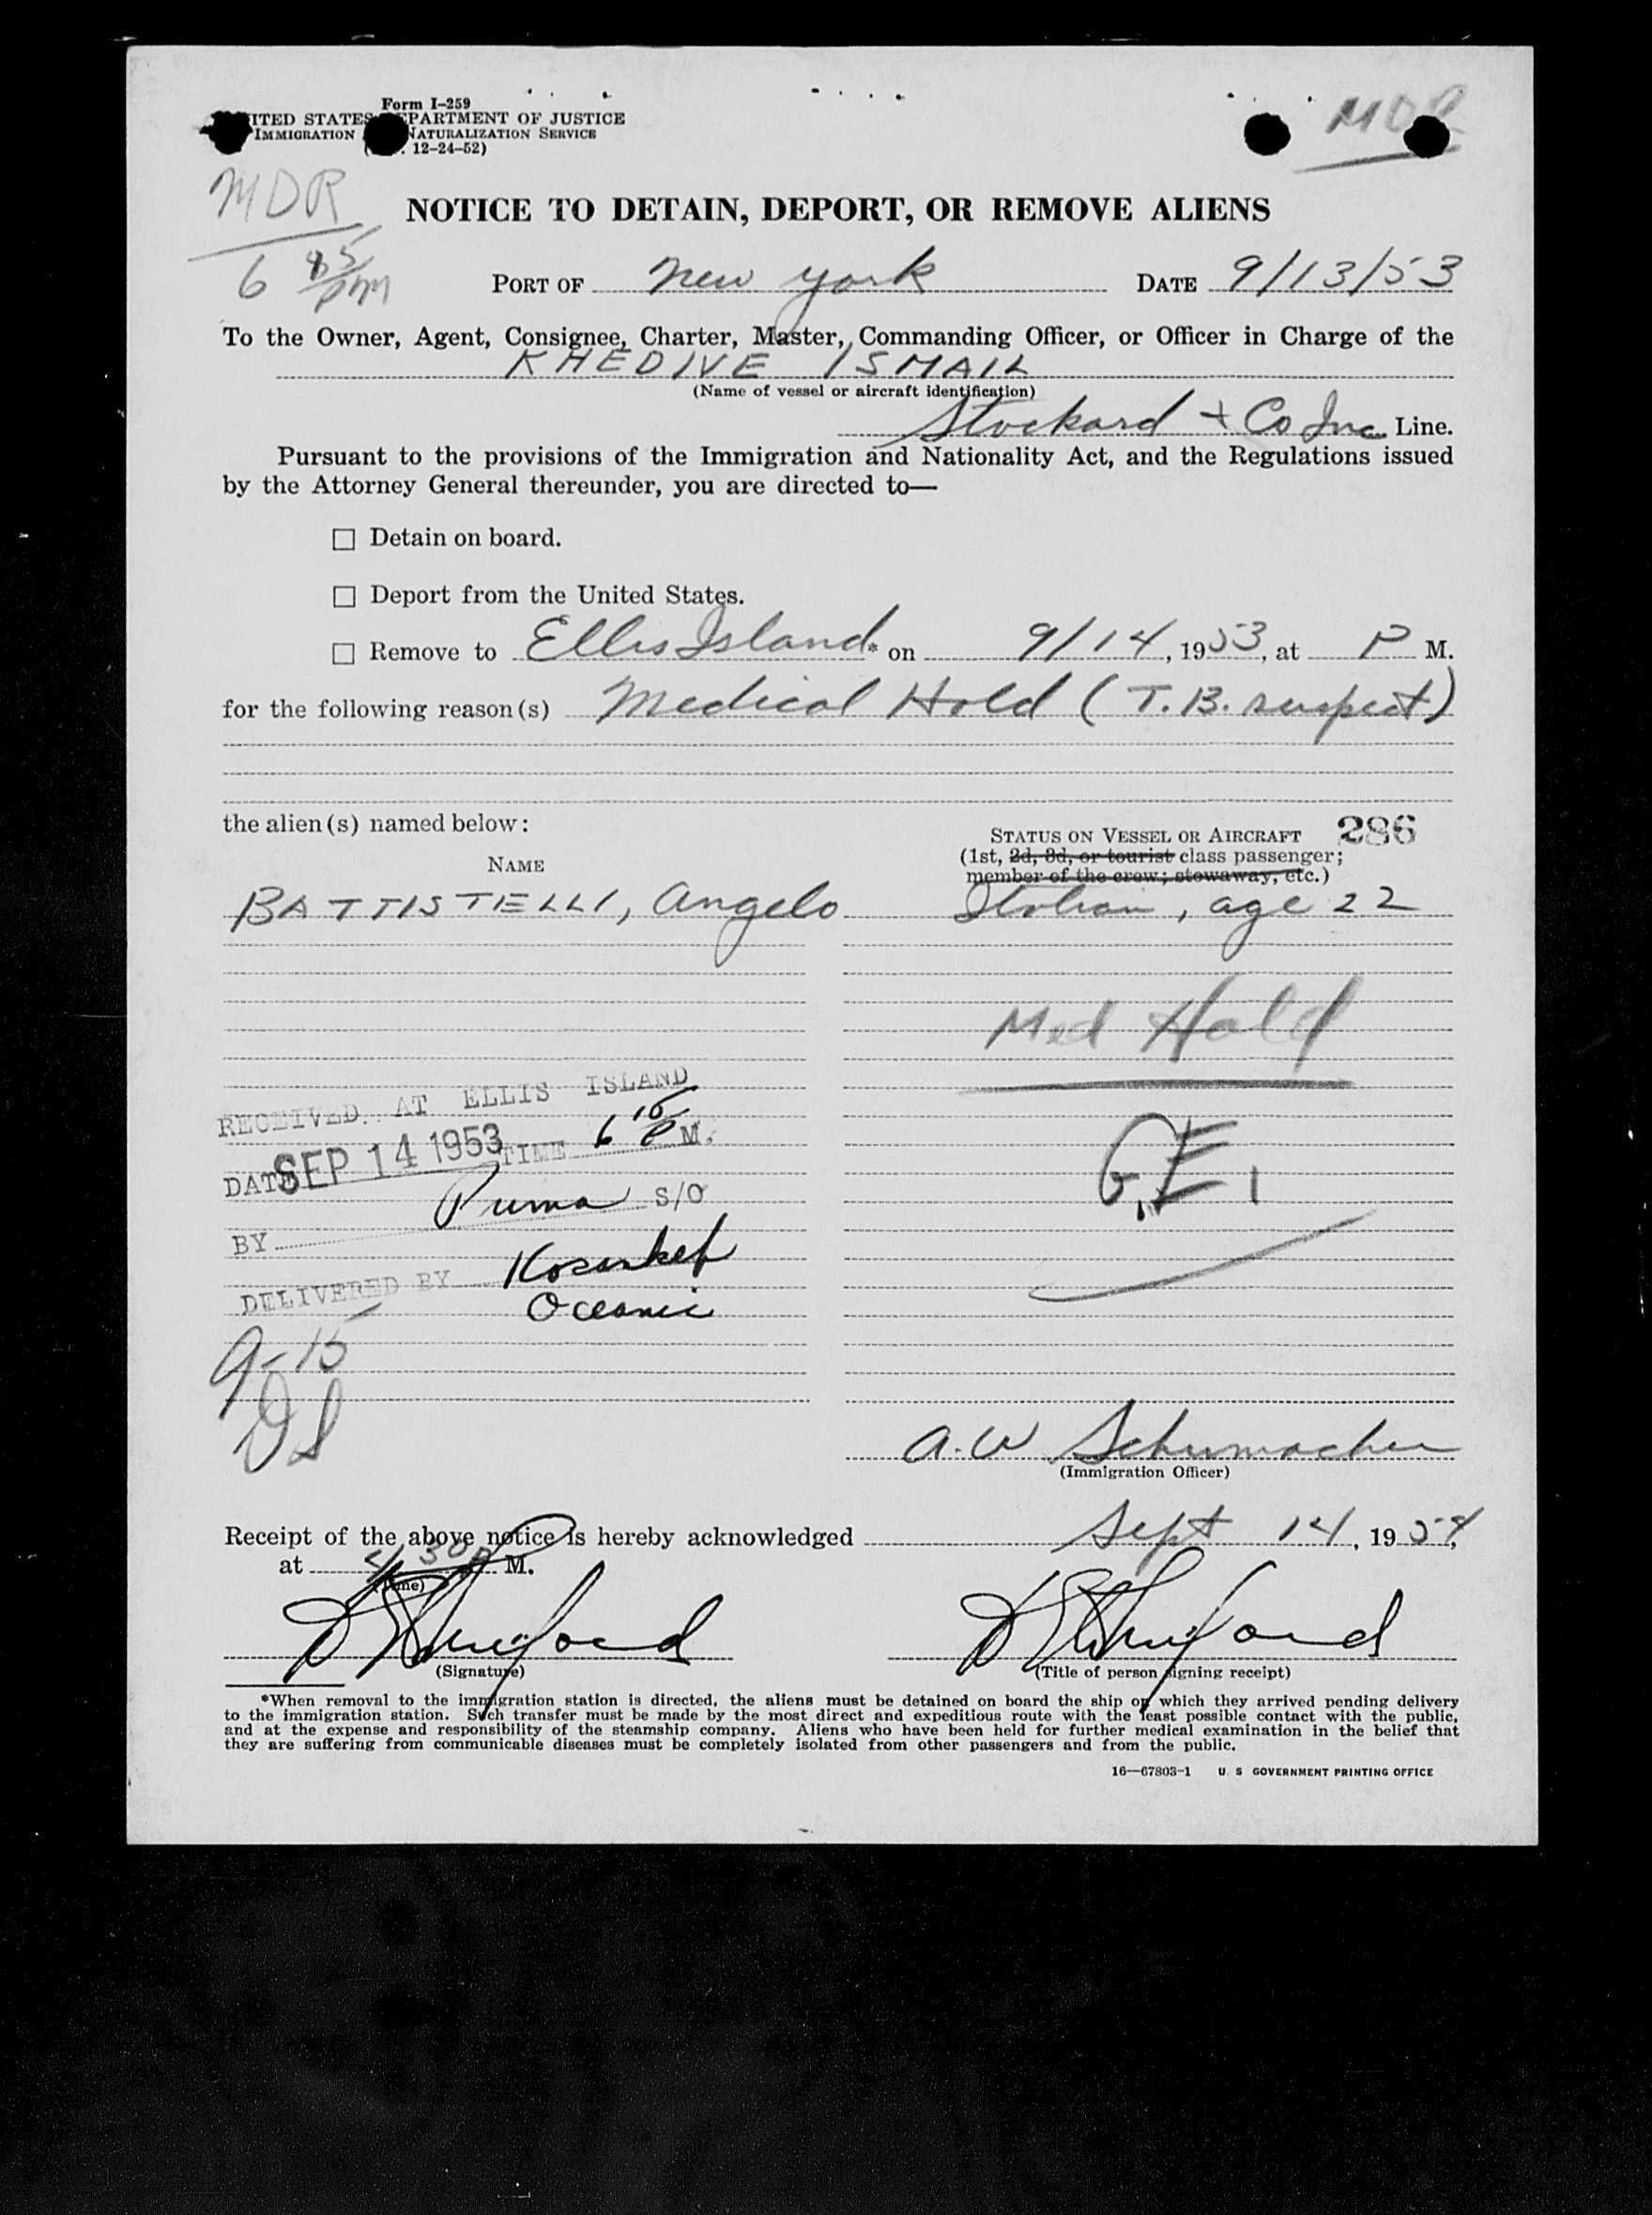 Form I-259
ITED STATES PARTMENT OF JUSTICE
IMMIGRATION NATURALIZATION SERVICE
12-24-52)
MDR
MDR
6 PM
NOTICE TO DETAIN, DEPORT, OR REMOVE ALIENS
PORT OF New York DATE 9/13/53
To the Owner, Agent, Consignee, Charter, Master, Commanding Officer, or Officer in Charge of the
KHEDIVE ISMAIL
(Name of vessel or aircraft identification)
Stockard + Co Inc. Line.
Pursuant to the provisions of the Immigration and Nationality Act, and the Regulations issued
by the Attorney General thereunder, you are directed to—
☐ Detain on board.
☐ Deport from the United States.
☐ Remove to Ellis Island* on 9/14, 1953, at P M.
for the following reason(s) Medical Hold (T.B. suspect)
the alien(s) named below:
286
STATUS ON VESSEL OR AIRCRAFT
(1st, 2d, 3d, or tourist class passenger;
member of the crew; stowaway, etc.)
NAME
BATTISTELLI, Angelo Italian, age 22
Med Hold
G.E. 1
RECEIVED AT ELLIS ISLAND
DATE SEP 14 1953 TIME 6 10 P M.
Puma S/O
BY
DELIVERED BY
Oceanic
9-15
DS
A. W Schumacher
(Immigration Officer)
Receipt of the above notice is hereby acknowledged Sept 14, 1954,
at 4 30 P M.
(Time)
(Signature)
(Title of person signing receipt)
*When removal to the immigration station is directed, the aliens must be detained on board the ship on which they arrived pending delivery
to the immigration station. Such transfer must be made by the most direct and expeditious route with the least possible contact with the public,
and at the expense and responsibility of the steamship company. Aliens who have been held for further medical examination in the belief that
they are suffering from communicable diseases must be completely isolated from other passengers and from the public.
16—67803-1 U. S GOVERNMENT PRINTING OFFICE